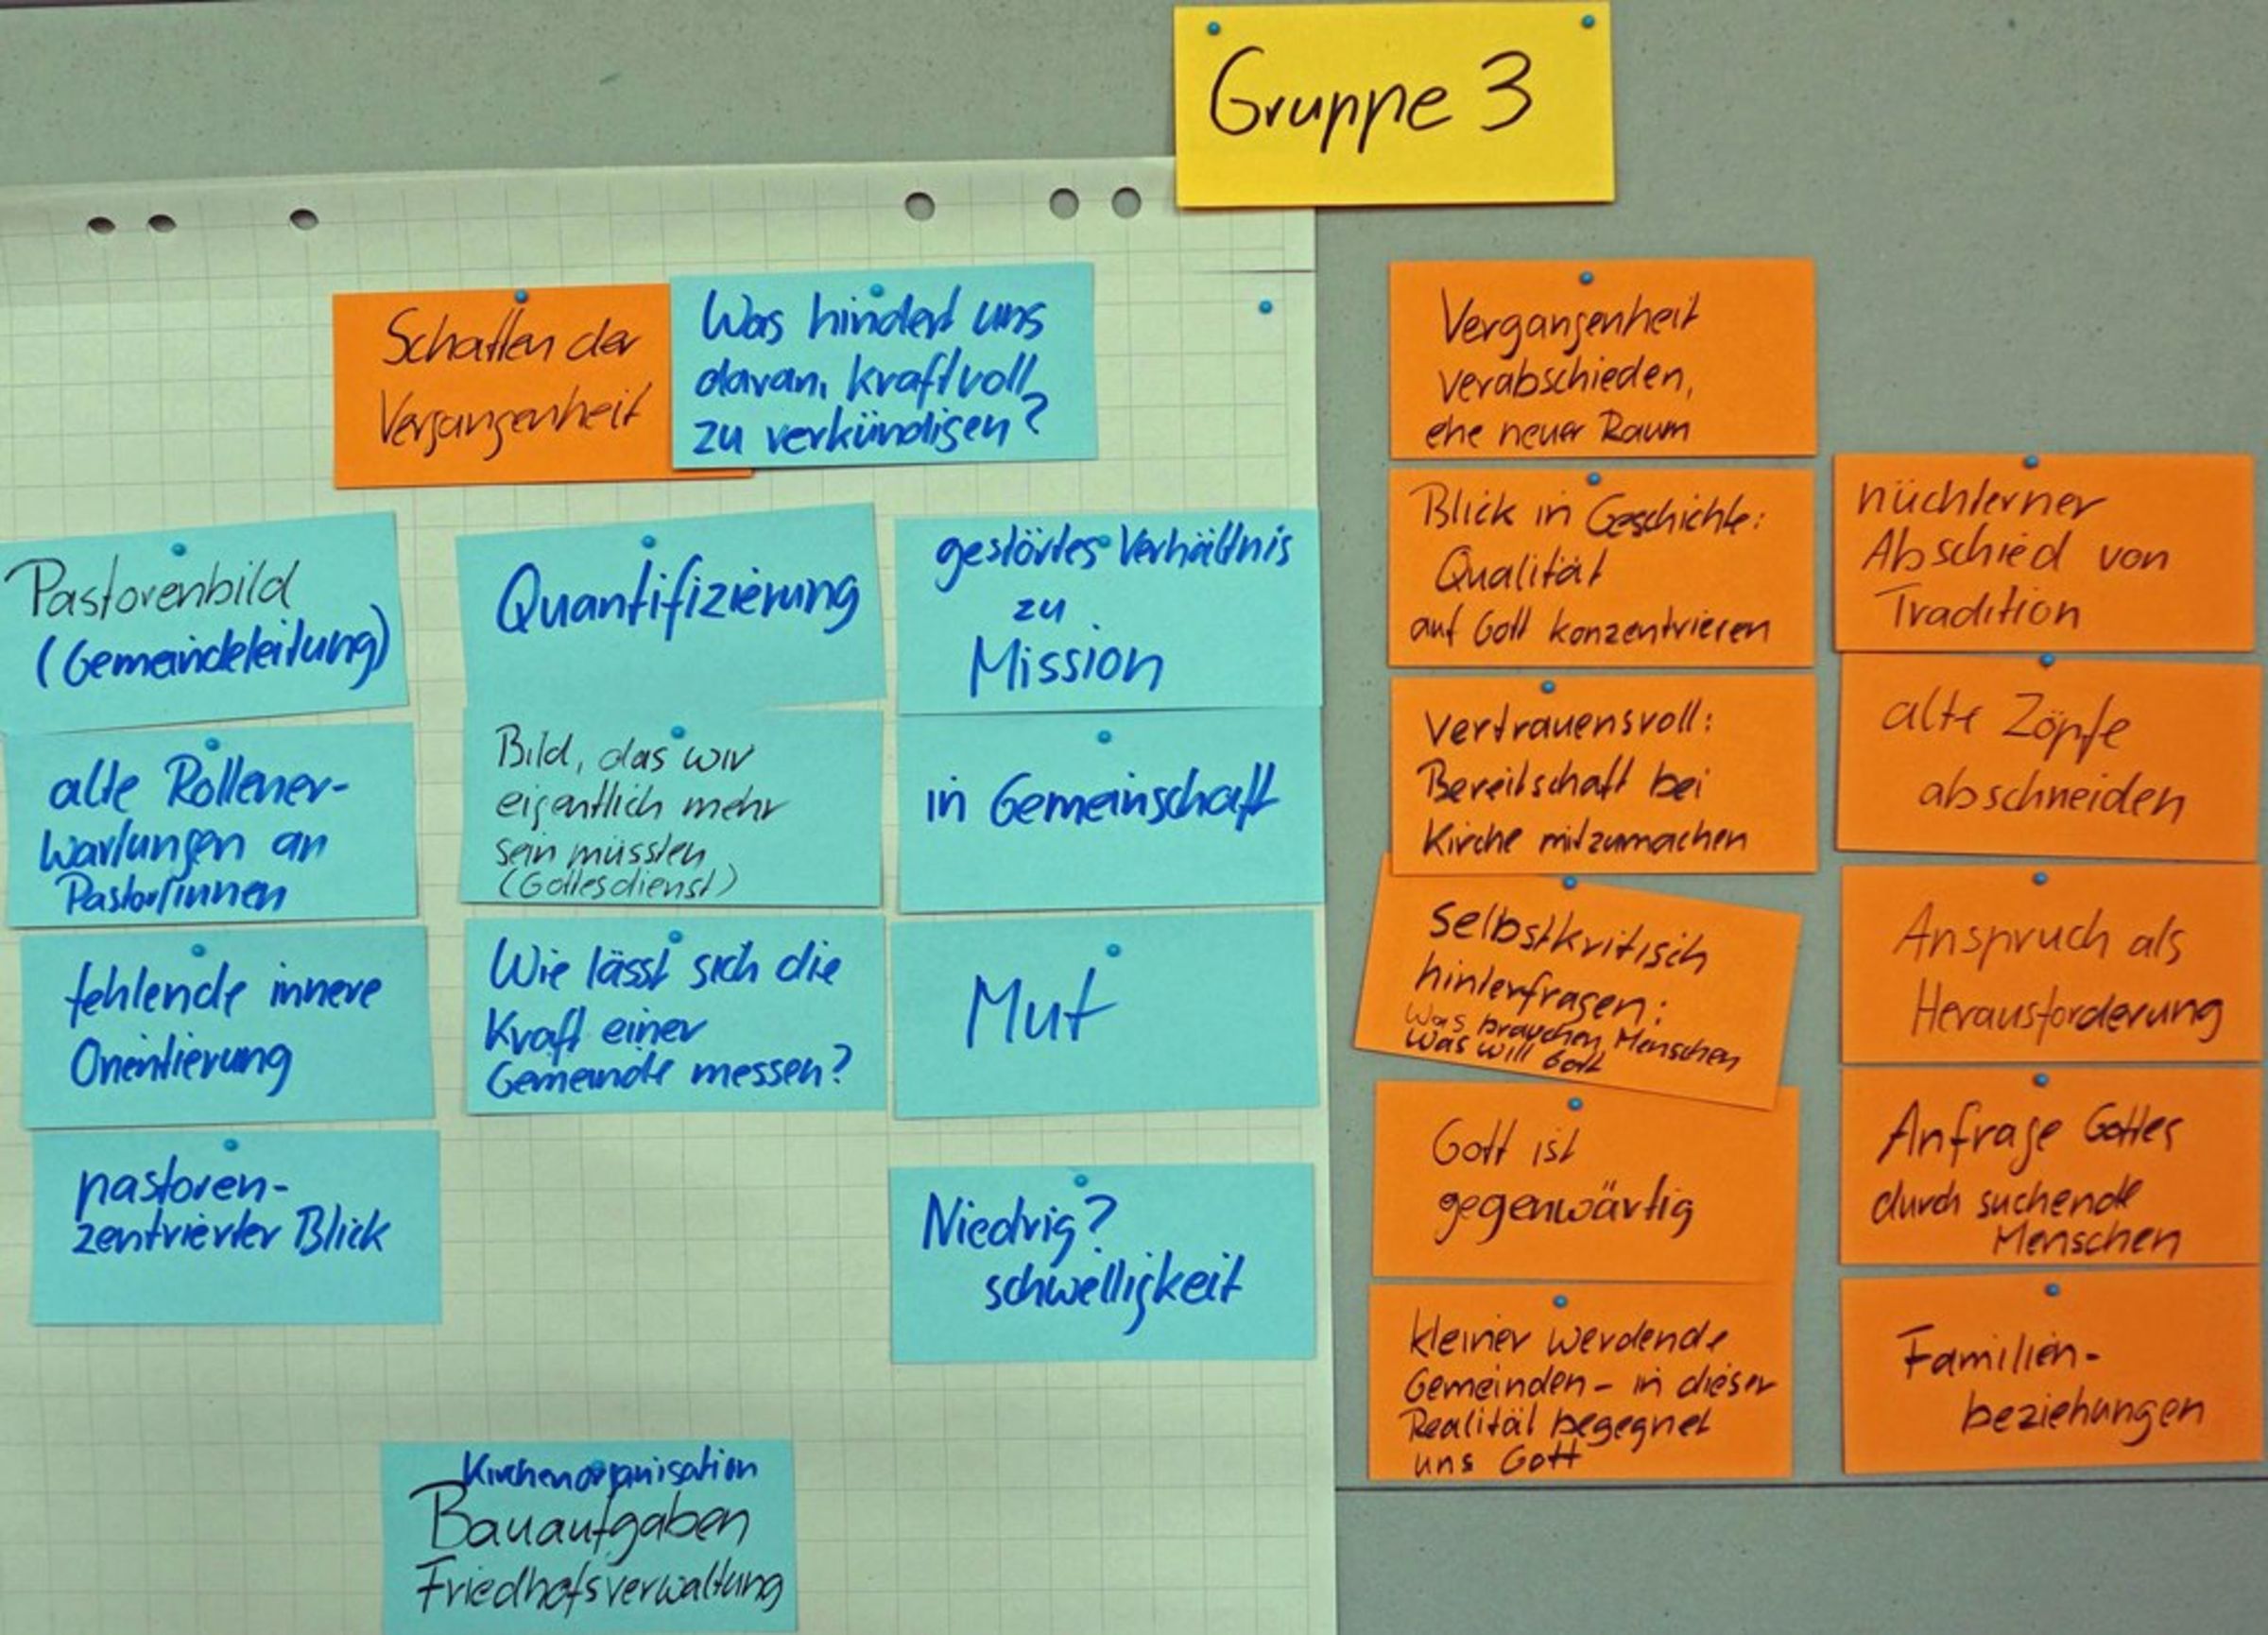 Gruppe 3
Schatten der
Vergangenheit
Was hindert uns
daran, kraftvoll
zu verkündigen?
Pastorenbild
(Gemeindeleitung)
alte Rollener-
wartungen an
Pastor/innen
fehlende innere
Orientierung
pastoren-
zentrierter Blick
Quantifizierung
Bild, das wir
eigentlich mehr
sein müssten
(Gottesdienst)
Wie lässt sich die
Kraft einer
Gemeinde messen?
gestörtes Verhältnis
zu
Mission
in Gemeinschaft
Mut
Niedrig?
schwelligkeit
Kirchenorganisation
Bauaufgaben
Friedhofsverwaltung
Vergangenheit
verabschieden,
ehe neuer Raum
Blick in Geschichte:
Qualität
auf Gott konzentrieren
Vertrauensvoll:
Bereitschaft bei
Kirche mitzumachen
Selbstkritisch
hinterfragen:
Was brauchen Menschen
Was will Gott
Gott ist
gegenwärtig
kleiner werdende
Gemeinden - in dieser
Realität begegnet
uns Gott
nüchterner
Abschied von
Tradition
alte Zöpfe
abschneiden
Anspruch als
Herausforderung
Anfrage Gottes
durch suchende
Menschen
Familien-
beziehungen